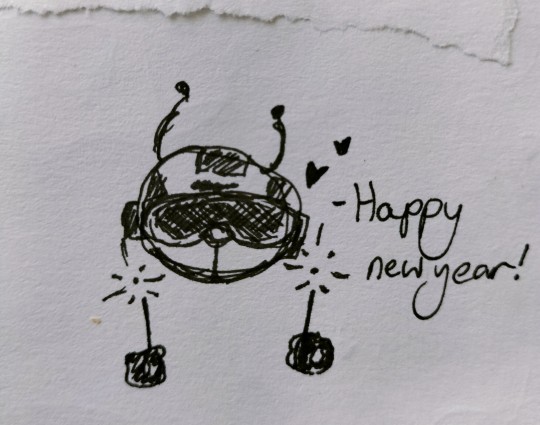 - Happy
new year!